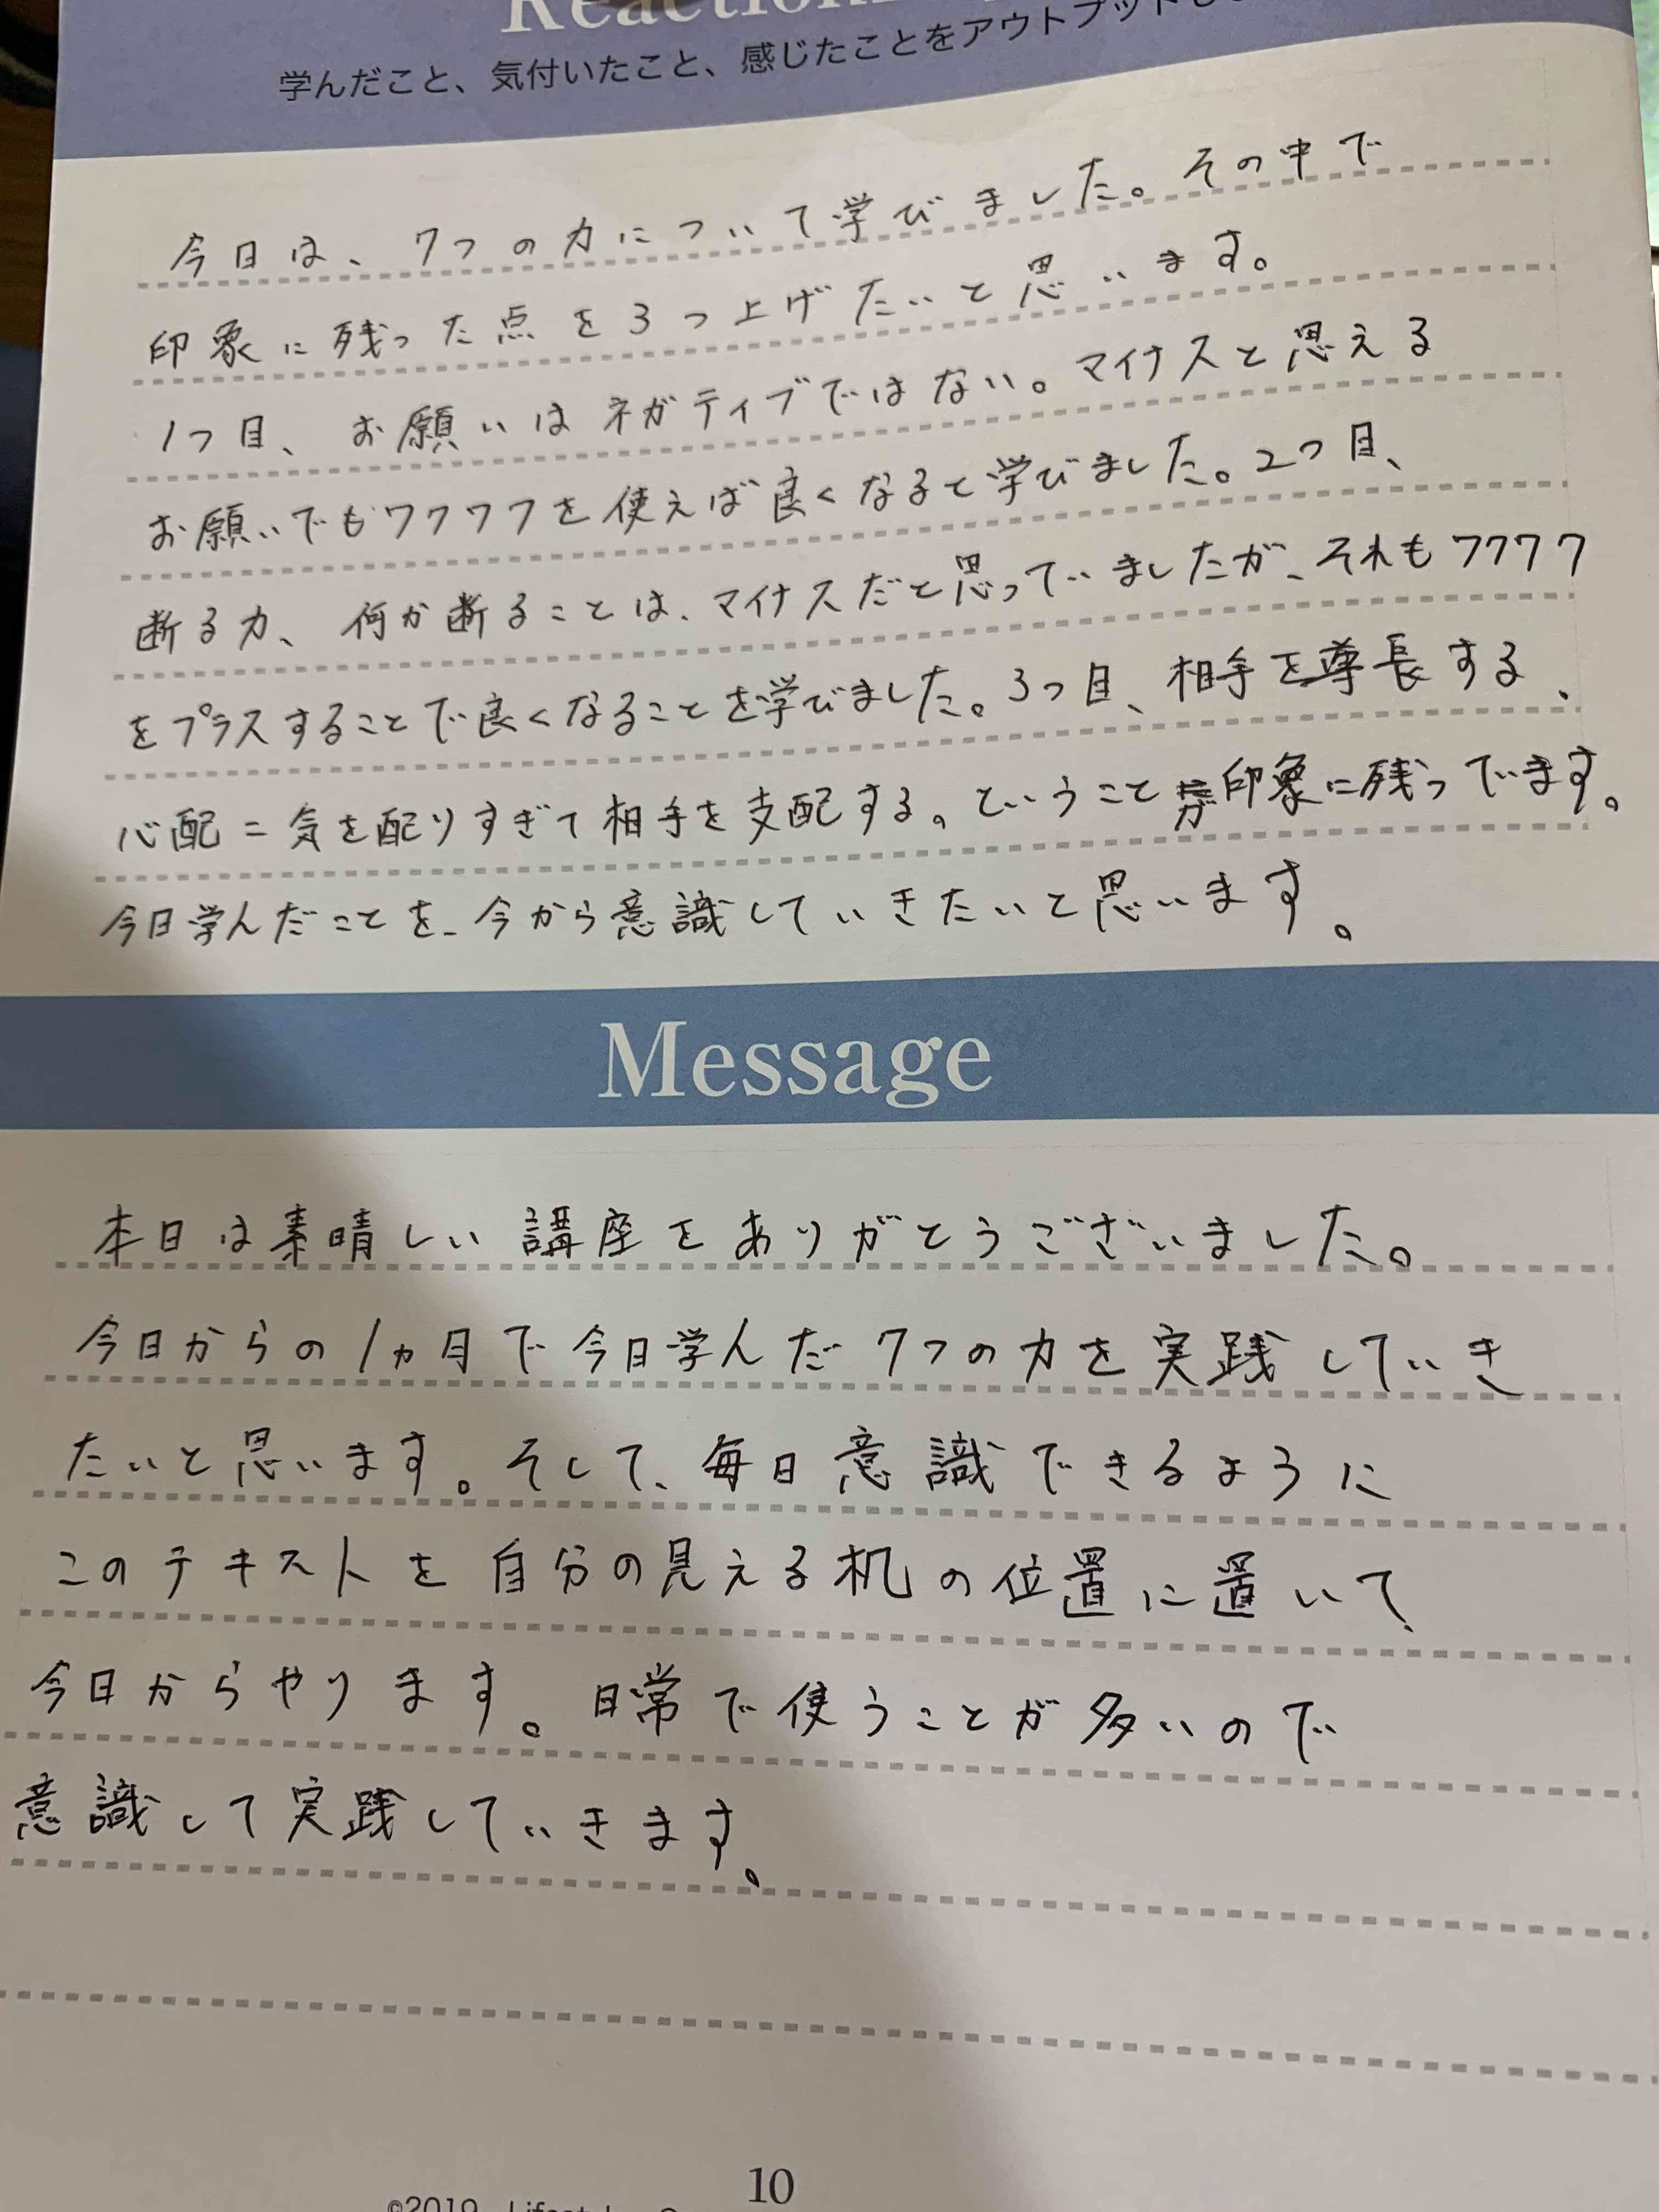 Reaction
学んだこと、気付いたこと、感じたことをアウトプットし
今日は、7つの力について学びました。その中で
印象に残った点を3つ上げたいと思います。
1つ目、お願いはネガティブではない。マイナスと思える
お願いでもワクワクを使えば良くなると学びました。2つ目、
断る力、何か断ることは、マイナスだと思っていましたが、それもワクワク
をプラスすることで良くなることを学びました。3つ目、相手を尊長する、
心配=気を配りすぎて相手を支配する。ということが印象に残ってでます。
今日学んだことを、今から意識していきたいと思います。
Message
本日は素晴しい講座をありがとうございました。
今日からの1ヵ月で今日学んだ7つの力を実践していき
たいと思います。そして、毎日意識できるように
このテキストを自分の見える机の位置に置いて、
今日からやります。日常で使うことが多いので
意識して実践していきます。
10
©2019